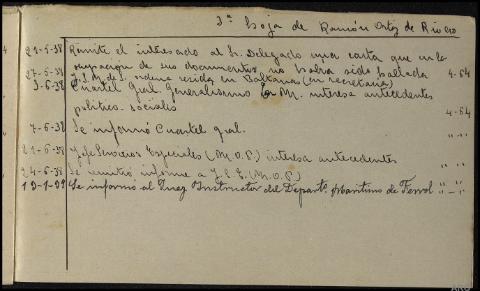 3ª hoja de Ramón Ortiz de Rivero
21-5-38 Remite el interesado al Sr. Delegado una carta que en la
ocupación de sus documentos no había sido hallada 4-64
27-5-38 ordena resida en Baltanás (en secretaría)
3-6-38 Cuartel Gral Generalísimo interesa antecedentes
político-sociales 4-64
7-6-38 Se informó Cuartel gral. " "
21-6-38 Jefe Servicios Especiales (M.O.P.) interesa antecedentes " "
24-6-38 Se remitió informe a J.S.E. (M.O.P.) " "
19-1-39 Se informó al Juez Instructor del Departº Marítimo de Ferrol " - "